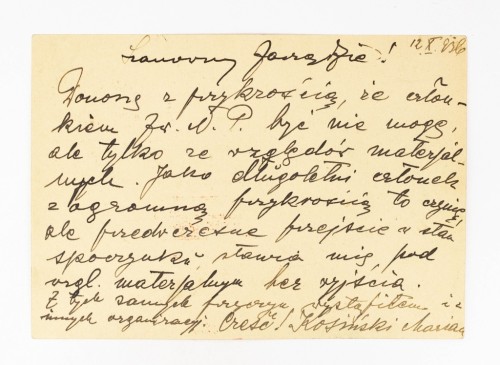 12 X. 936
Szanowny Zarządzie!
Donoszę z przykrością, że człon-
kiem Zw. N. P. być nie mogę,
ale tylko ze względów materjal-
nych. Jako długoletni członek
z ogromną przykrością to czynię,
ale przedwczesne przejście w stan
spoczynku stawia mię pod
wzgl. materjalnym bez wyjścia.
Z tych samych przyczyn wystąpiłem i z
innych organizacyj. Cześć! Kosiński Marian